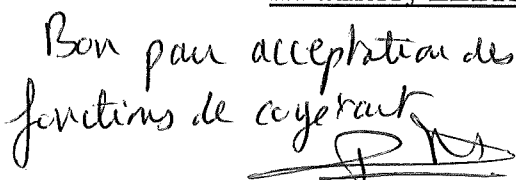 Bon pour acceptation des
fonctions de cogérant